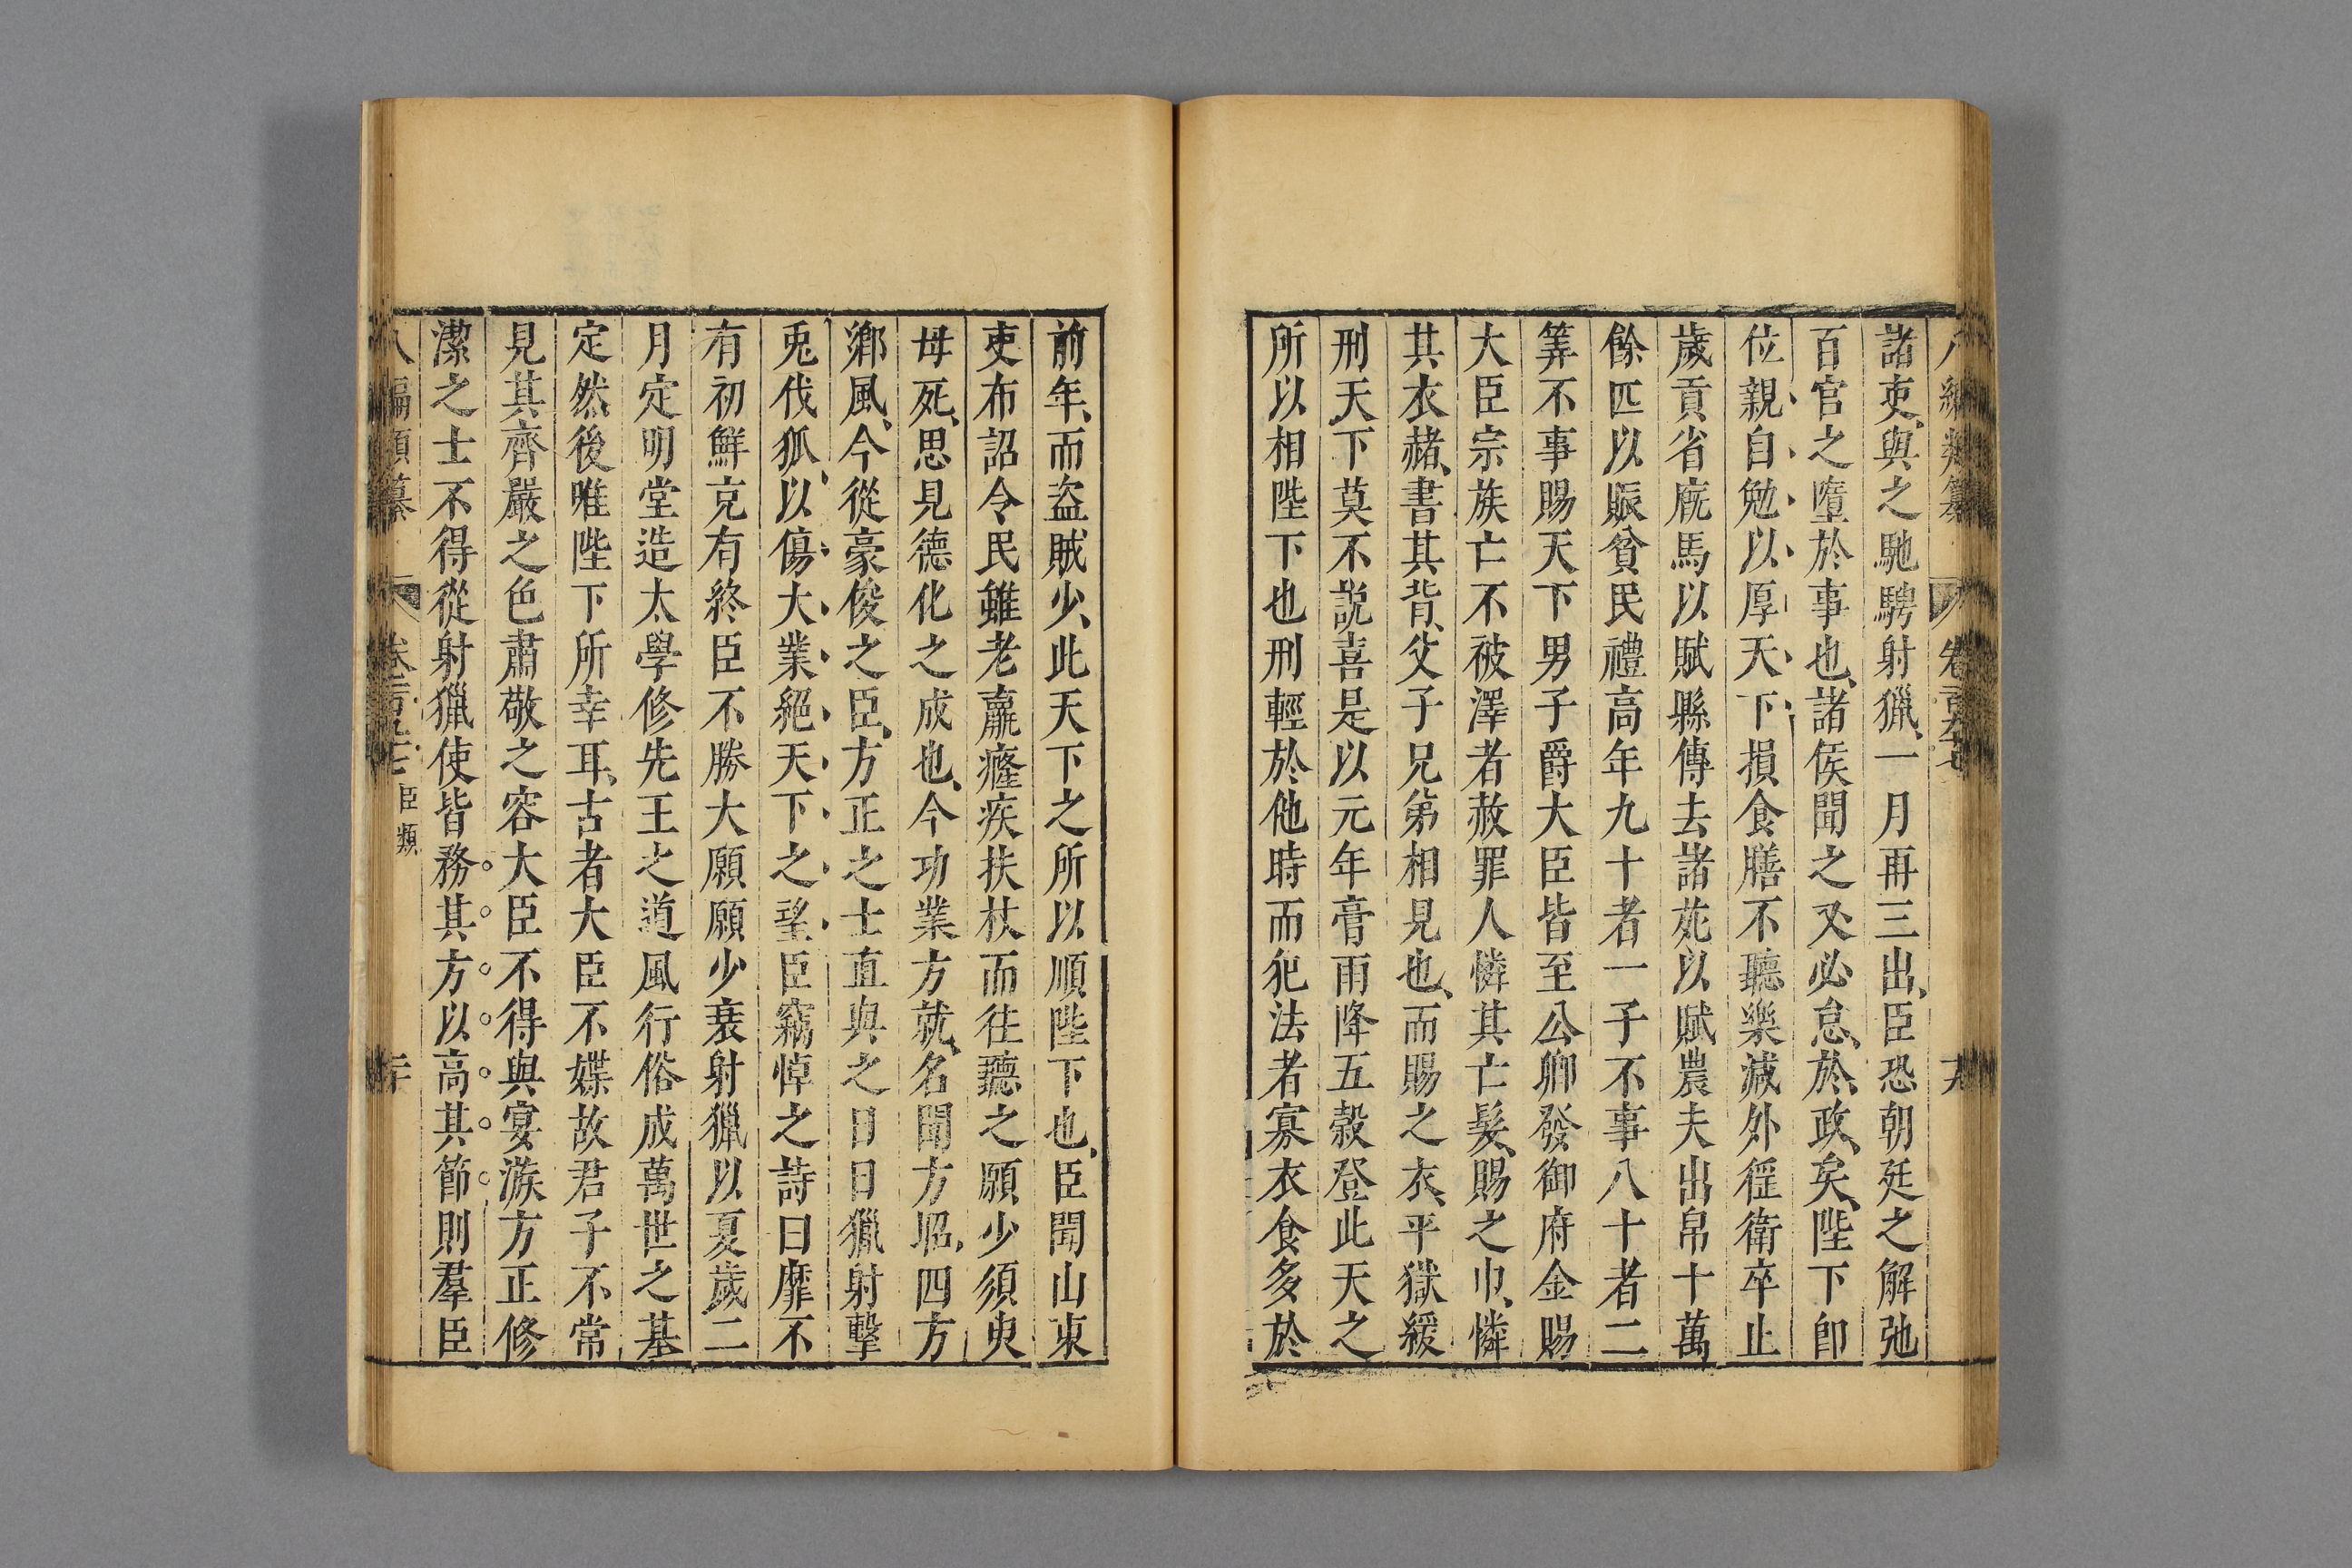 諸吏與之馳騁射獵一月再三出臣恐朝廷之解弛
百官之墮於事也諸侯聞之又必怠於政矣陛下卽
位親自勉以厚天下損食膳不聽樂減外徭衛卒止
歲貢省廐馬以賦縣傳去諸苑以賦農夫出帛十萬
餘匹以賑貧民禮高年九十者一子不事八十者二
筭不事賜天下男子爵大臣皆至公卿發御府金賜
大臣宗族亡不被澤者赦罪人憐其亡髮賜之巾憐
其衣赭書其背父子兄弟相見也而賜之衣平獄緩
刑天下莫不說喜是以元年膏雨降五穀登此天之
所以相陛下也刑輕於他時而犯法者寡衣食多於
前年而盜賊少此天下之所以順陛下也臣聞山東
吏布詔令民雖老羸癃疾扶杖而往聽之願少須臾
毋死思見德化之成也今功業方就名聞方昭四方
鄉風今從豪俊之臣方正之士直與之日日獵射擊
兎伐狐以傷大業絕天下之望臣竊悼之詩曰靡不
有初鮮克有終臣不勝大願願少衰射獵以夏歲二
月定明堂造太學修先王之道風行俗成萬世之基
定然後唯陛下所幸耳古者大臣不媟故君子不常
見其齊嚴之色肅敬之容大臣不得與宴游方正修
潔之士不得從射獵使皆務其方以高其節則羣臣
八編類纂 臣類